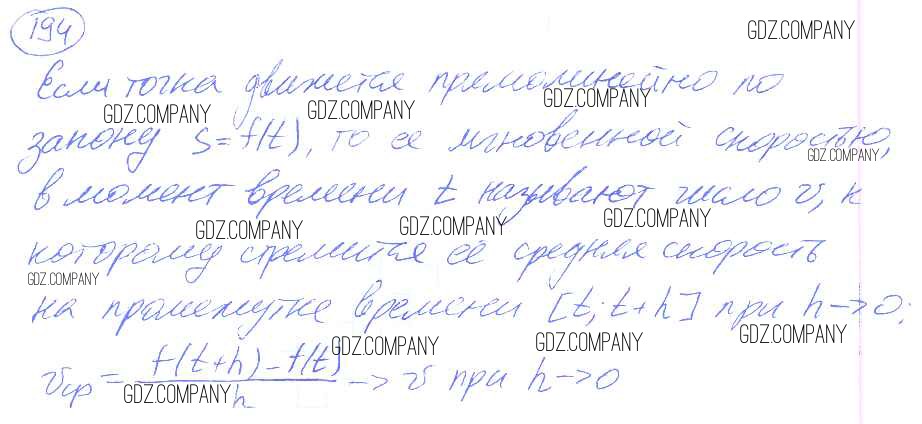 194
GDZ.COMPANY
Если точка движется прямолинейно по
GDZ.COMPANY GDZ.COMPANY GDZ.COMPANY
закону s=f(t), то её мгновенной скоростью,
GDZ.COMPANY
в момент времени t называют число v, к
GDZ.COMPANY GDZ.COMPANY GDZ.COMPANY
которому стремится её средняя скорость
GDZ.COMPANY
на промежутке времени [t; t+h] при h→0;
GDZ.COMPANY GDZ.COMPANY GDZ.COMPANY
vср = f(t+h)-f(t) / h → v при h→0
GDZ.COMPANY